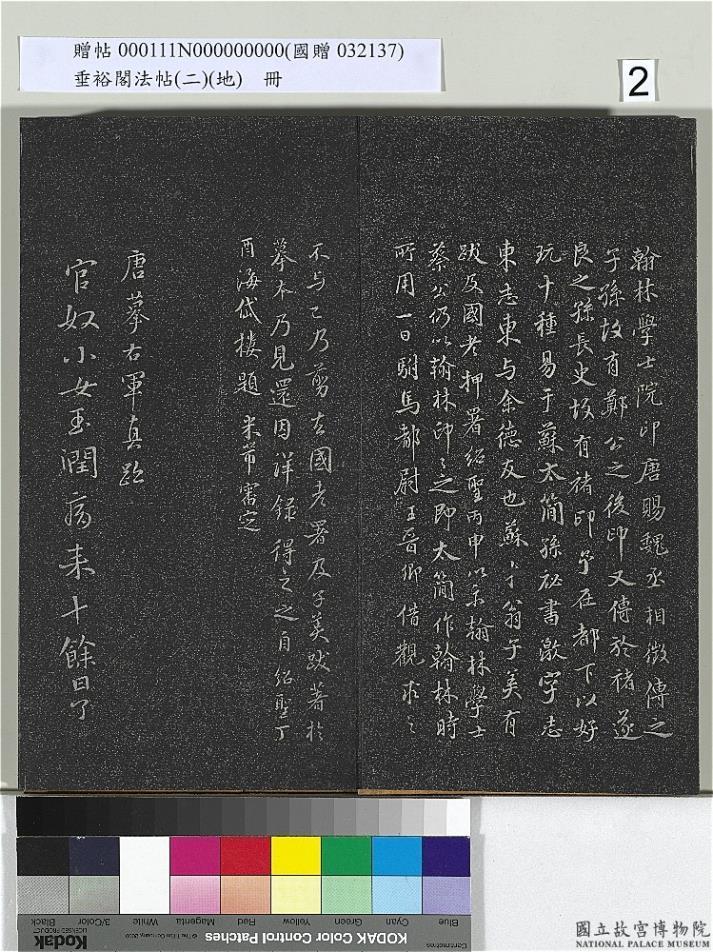 贈帖 000111N000000000(國贈 032137)
垂裕閣法帖(二)(地) 冊
2
翰林學士院印唐賜魏丞相徵傳之
子孫故有鄭公之後印又傳於褚遂
良之孫長史故有褚印予在都下以好
玩十種易于蘇太簡孫祕書激字志
東志東与余德友也蘇才翁子美有
跋及國老押署紹聖丙申以示翰林學士
蔡公仍以翰林印印之即太簡作翰林時
所用一日駙馬都尉王晉卿借觀求之
不与已乃剪去國老署及子美跋著於
摹本乃見還因詳錄得之之自紹聖丁
酉海岱樓題 米芾審定
唐摹右軍真跡
官奴小女玉潤病来十餘日了
Blue
Cyan
Green
Yellow
Red
Magenta
White
3/Color
Black
KODAK Color Control Patches
Kodak
LICENSED PRODUCT
Centimetres
國立故宮博物院
NATIONAL PALACE MUSEUM